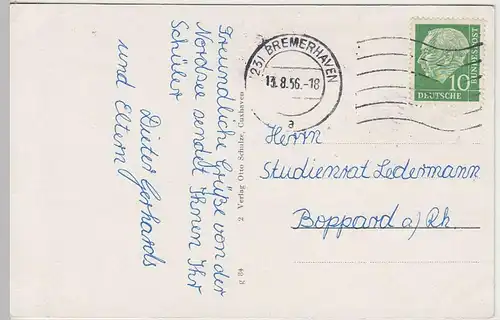 Freundliche Grüße von der
Nordsee sendet Ihnen Ihr
Schüler
Dieter Gerhards
und Eltern
2 Verlag Otto Schulze, Cuxhaven
(23) BREMERHAVEN
13.8.56.-18
a
DEUTSCHE
BUNDESPOST
10
Herrn
Studienrat Ledermann
Boppard a/Rh.